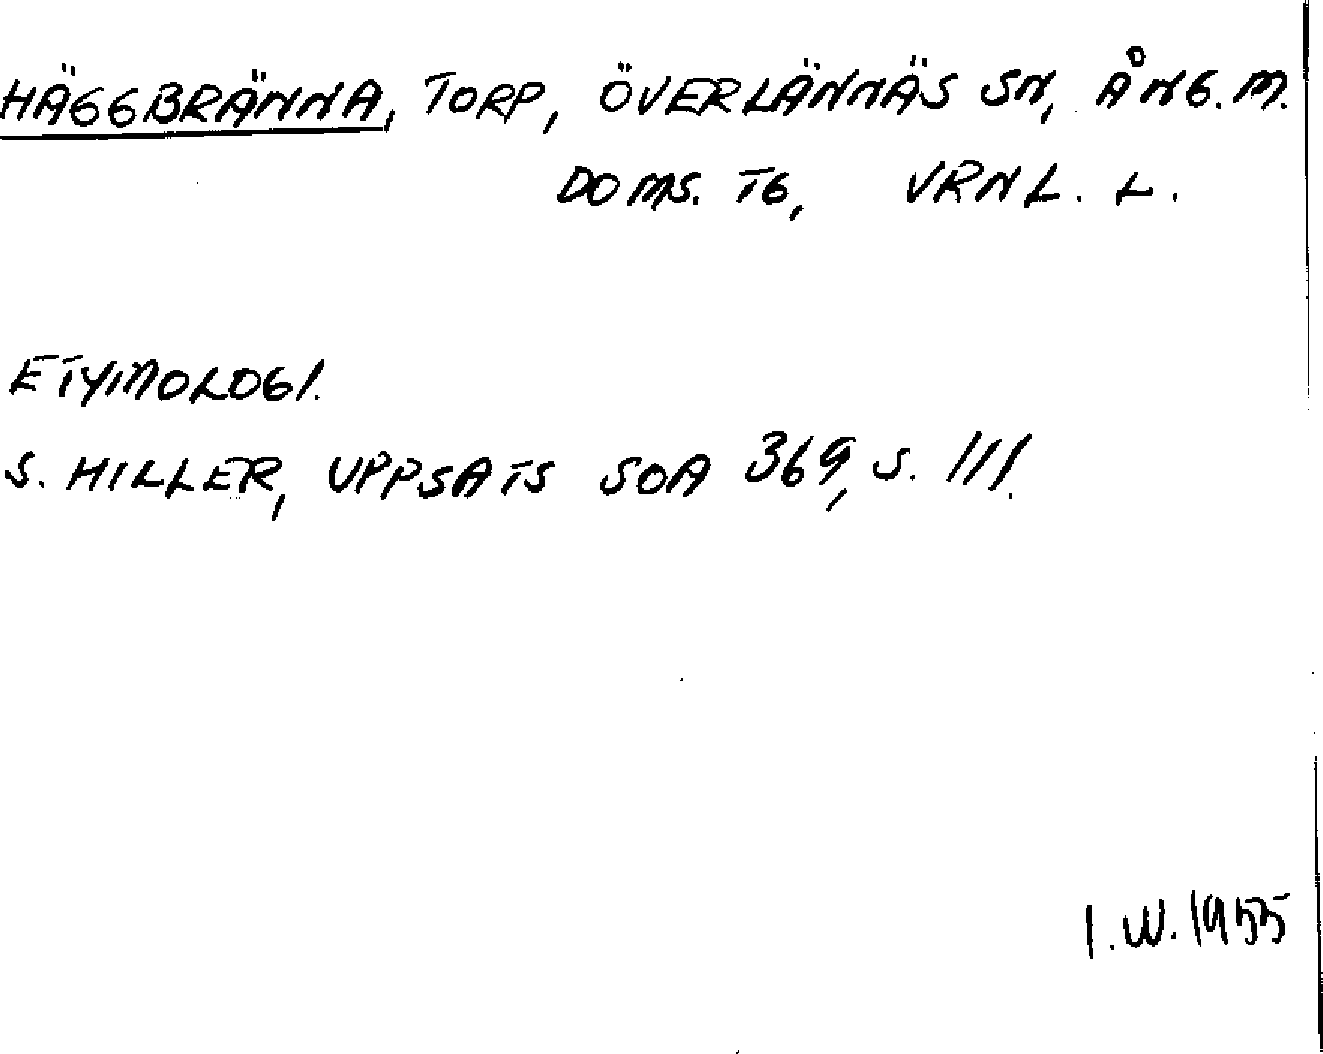 HÄGGBRÄNNA, TORP, ÖVERLÄNNÄS SN, ÅNG. M.
DOMS. TG, VRNL. L.
ETYMOLOGI.
S. HILLER, UPPSATS SOA 369, S. 111.
I.W. 1955